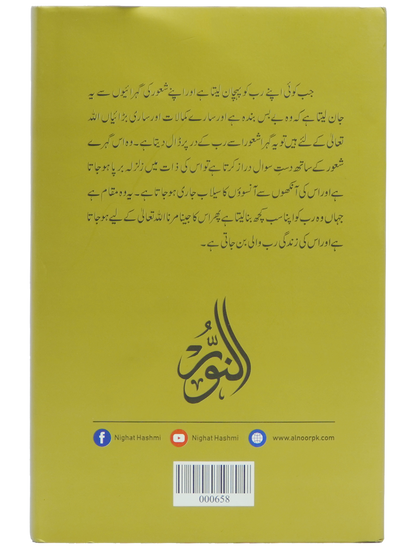 جب کوئی اپنے رب کو پہچان لیتا ہے اور اپنے شعور کی گہرائیوں سے یہ
جان لیتا ہے کہ وہ بے بس بندہ ہے اور سارے کمالات اور ساری بڑائیاں اللہ
تعالیٰ کے لئے ہیں تو یہ گہرا شعور اسے رب کے در پر ڈال دیتا ہے۔ وہ اس گہرے
شعور کے ساتھ دستِ سوال دراز کرتا ہے تو اس کی ذات میں زلزلہ برپا ہو جاتا
ہے اور اس کی آنکھوں سے آنسوؤں کا سیلاب جاری ہو جاتا ہے۔ یہ وہ مقام ہے
جہاں وہ رب کو اپنا سب کچھ بنا لیتا ہے پھر اس کا جینا مرنا اللہ تعالیٰ کے لیے ہو جاتا
ہے اور اس کی زندگی رب والی بن جاتی ہے۔
النُّور
Nighat Hashmi Nighat Hashmi www.alnoorpk.com
000658